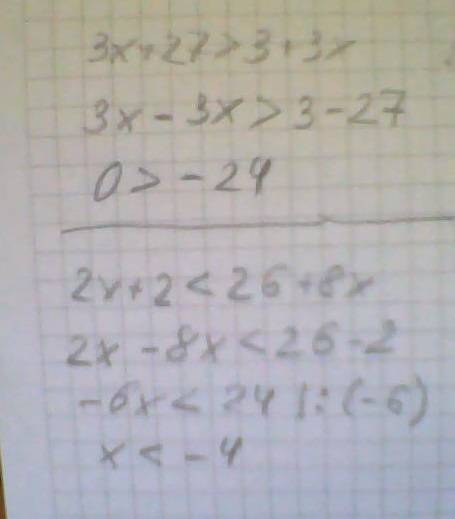 3x+27>3+3x
3x-3x>3-27
0>-24
2x+2<26+8x
2x-8x<26-2
-6x<24 |:(-6)
x<-4